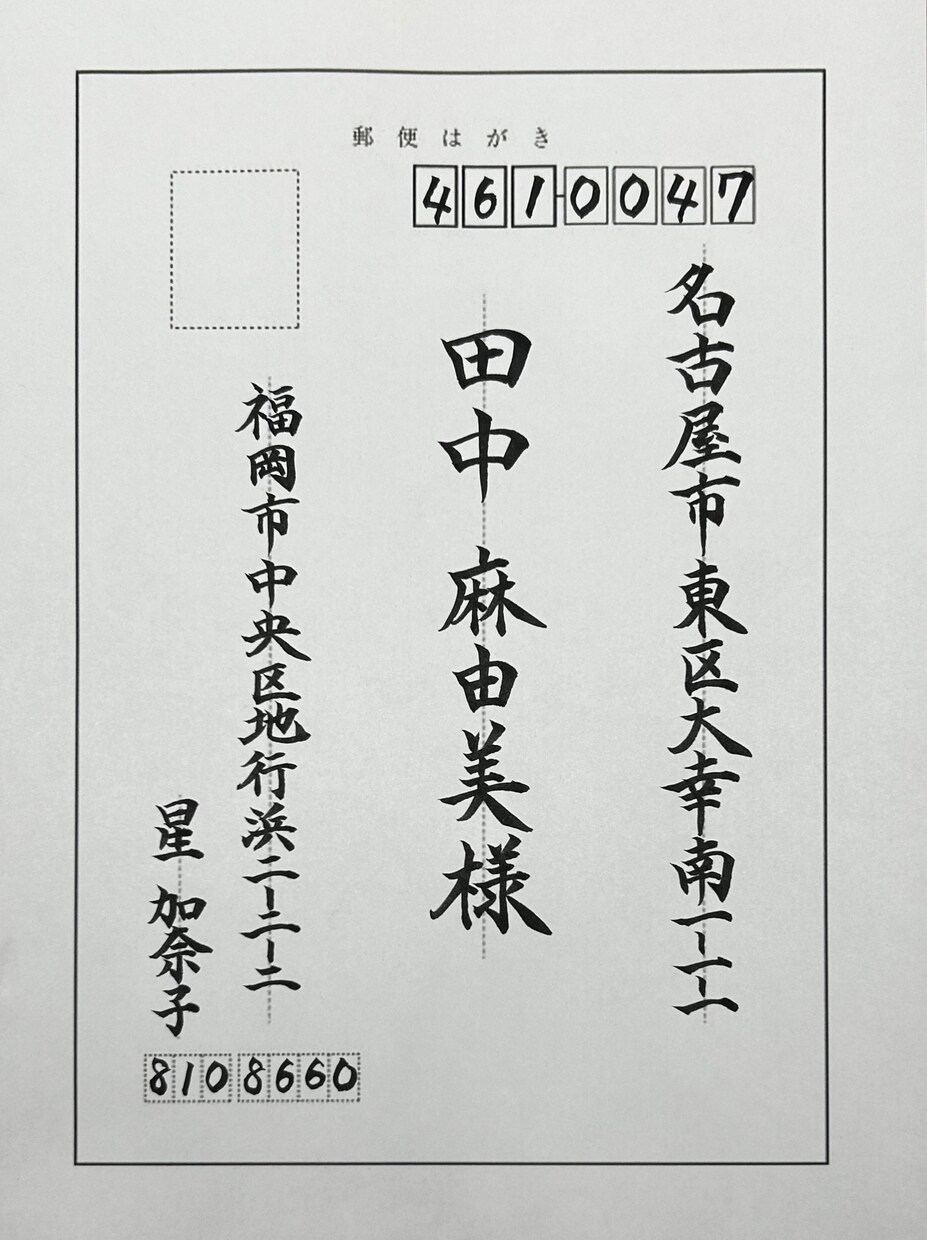 郵便はがき
461-0047
名古屋市東区大幸南一ー一ー一
田中 麻由美様
福岡市中央区地行浜二ー二ー二
星 加奈子
8108660